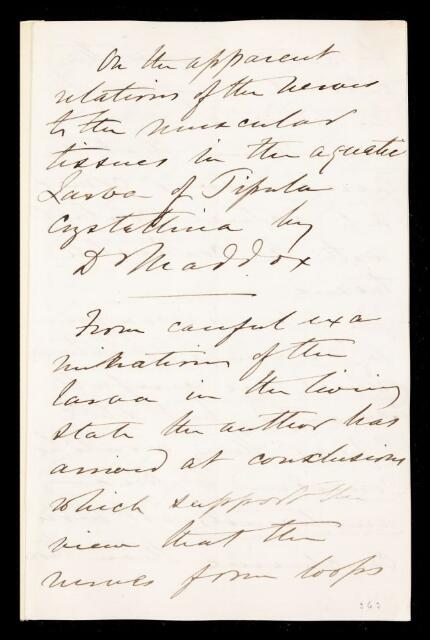 On the apparent
relations of the nerves
to the muscular
tissues in the aquatic
Larva of Tipula
Crystallina by
Dr Maddox
From careful exa
minations of the
larva in the living
state the author has
arrived at conclusions
which support the
view that the
nerves form loops
363